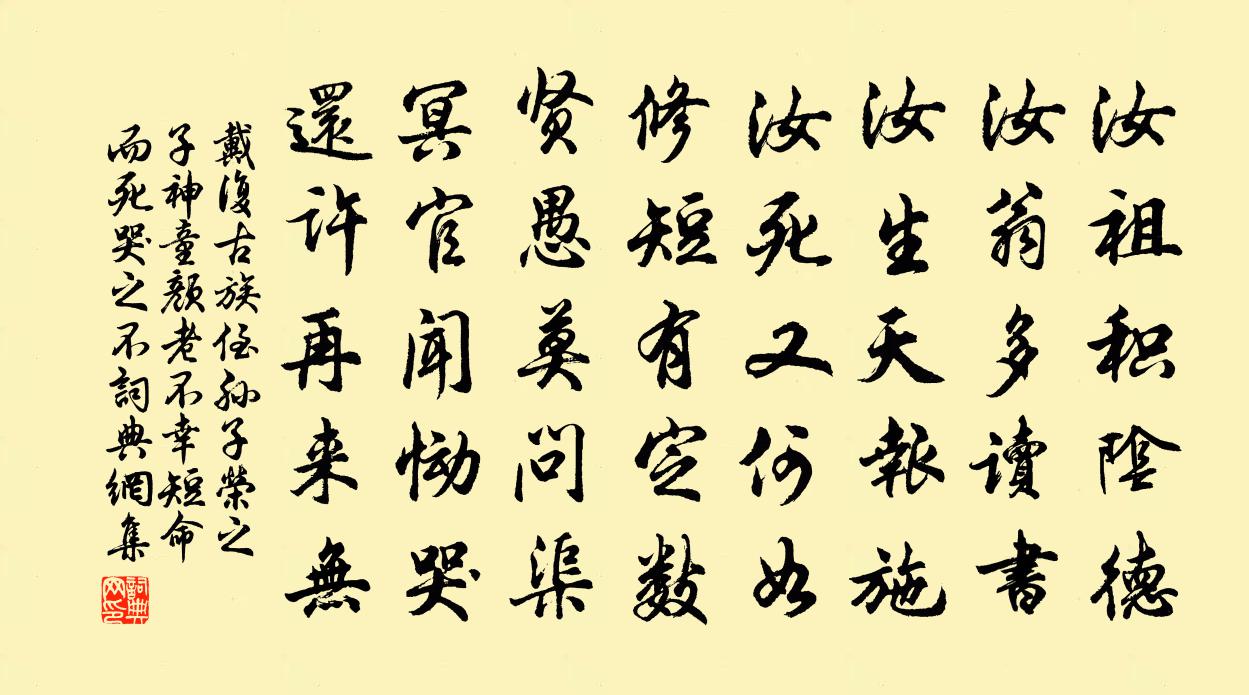 汝祖积陰德
汝翁多讀書
汝生天報施
汝死又何如
修短有定数
贤愚莫问渠
冥官闻恸哭
還许再来無
戴復古族侄孙子榮之
子神童颜老不幸短命
而死哭之不詞典網集
詞典网印